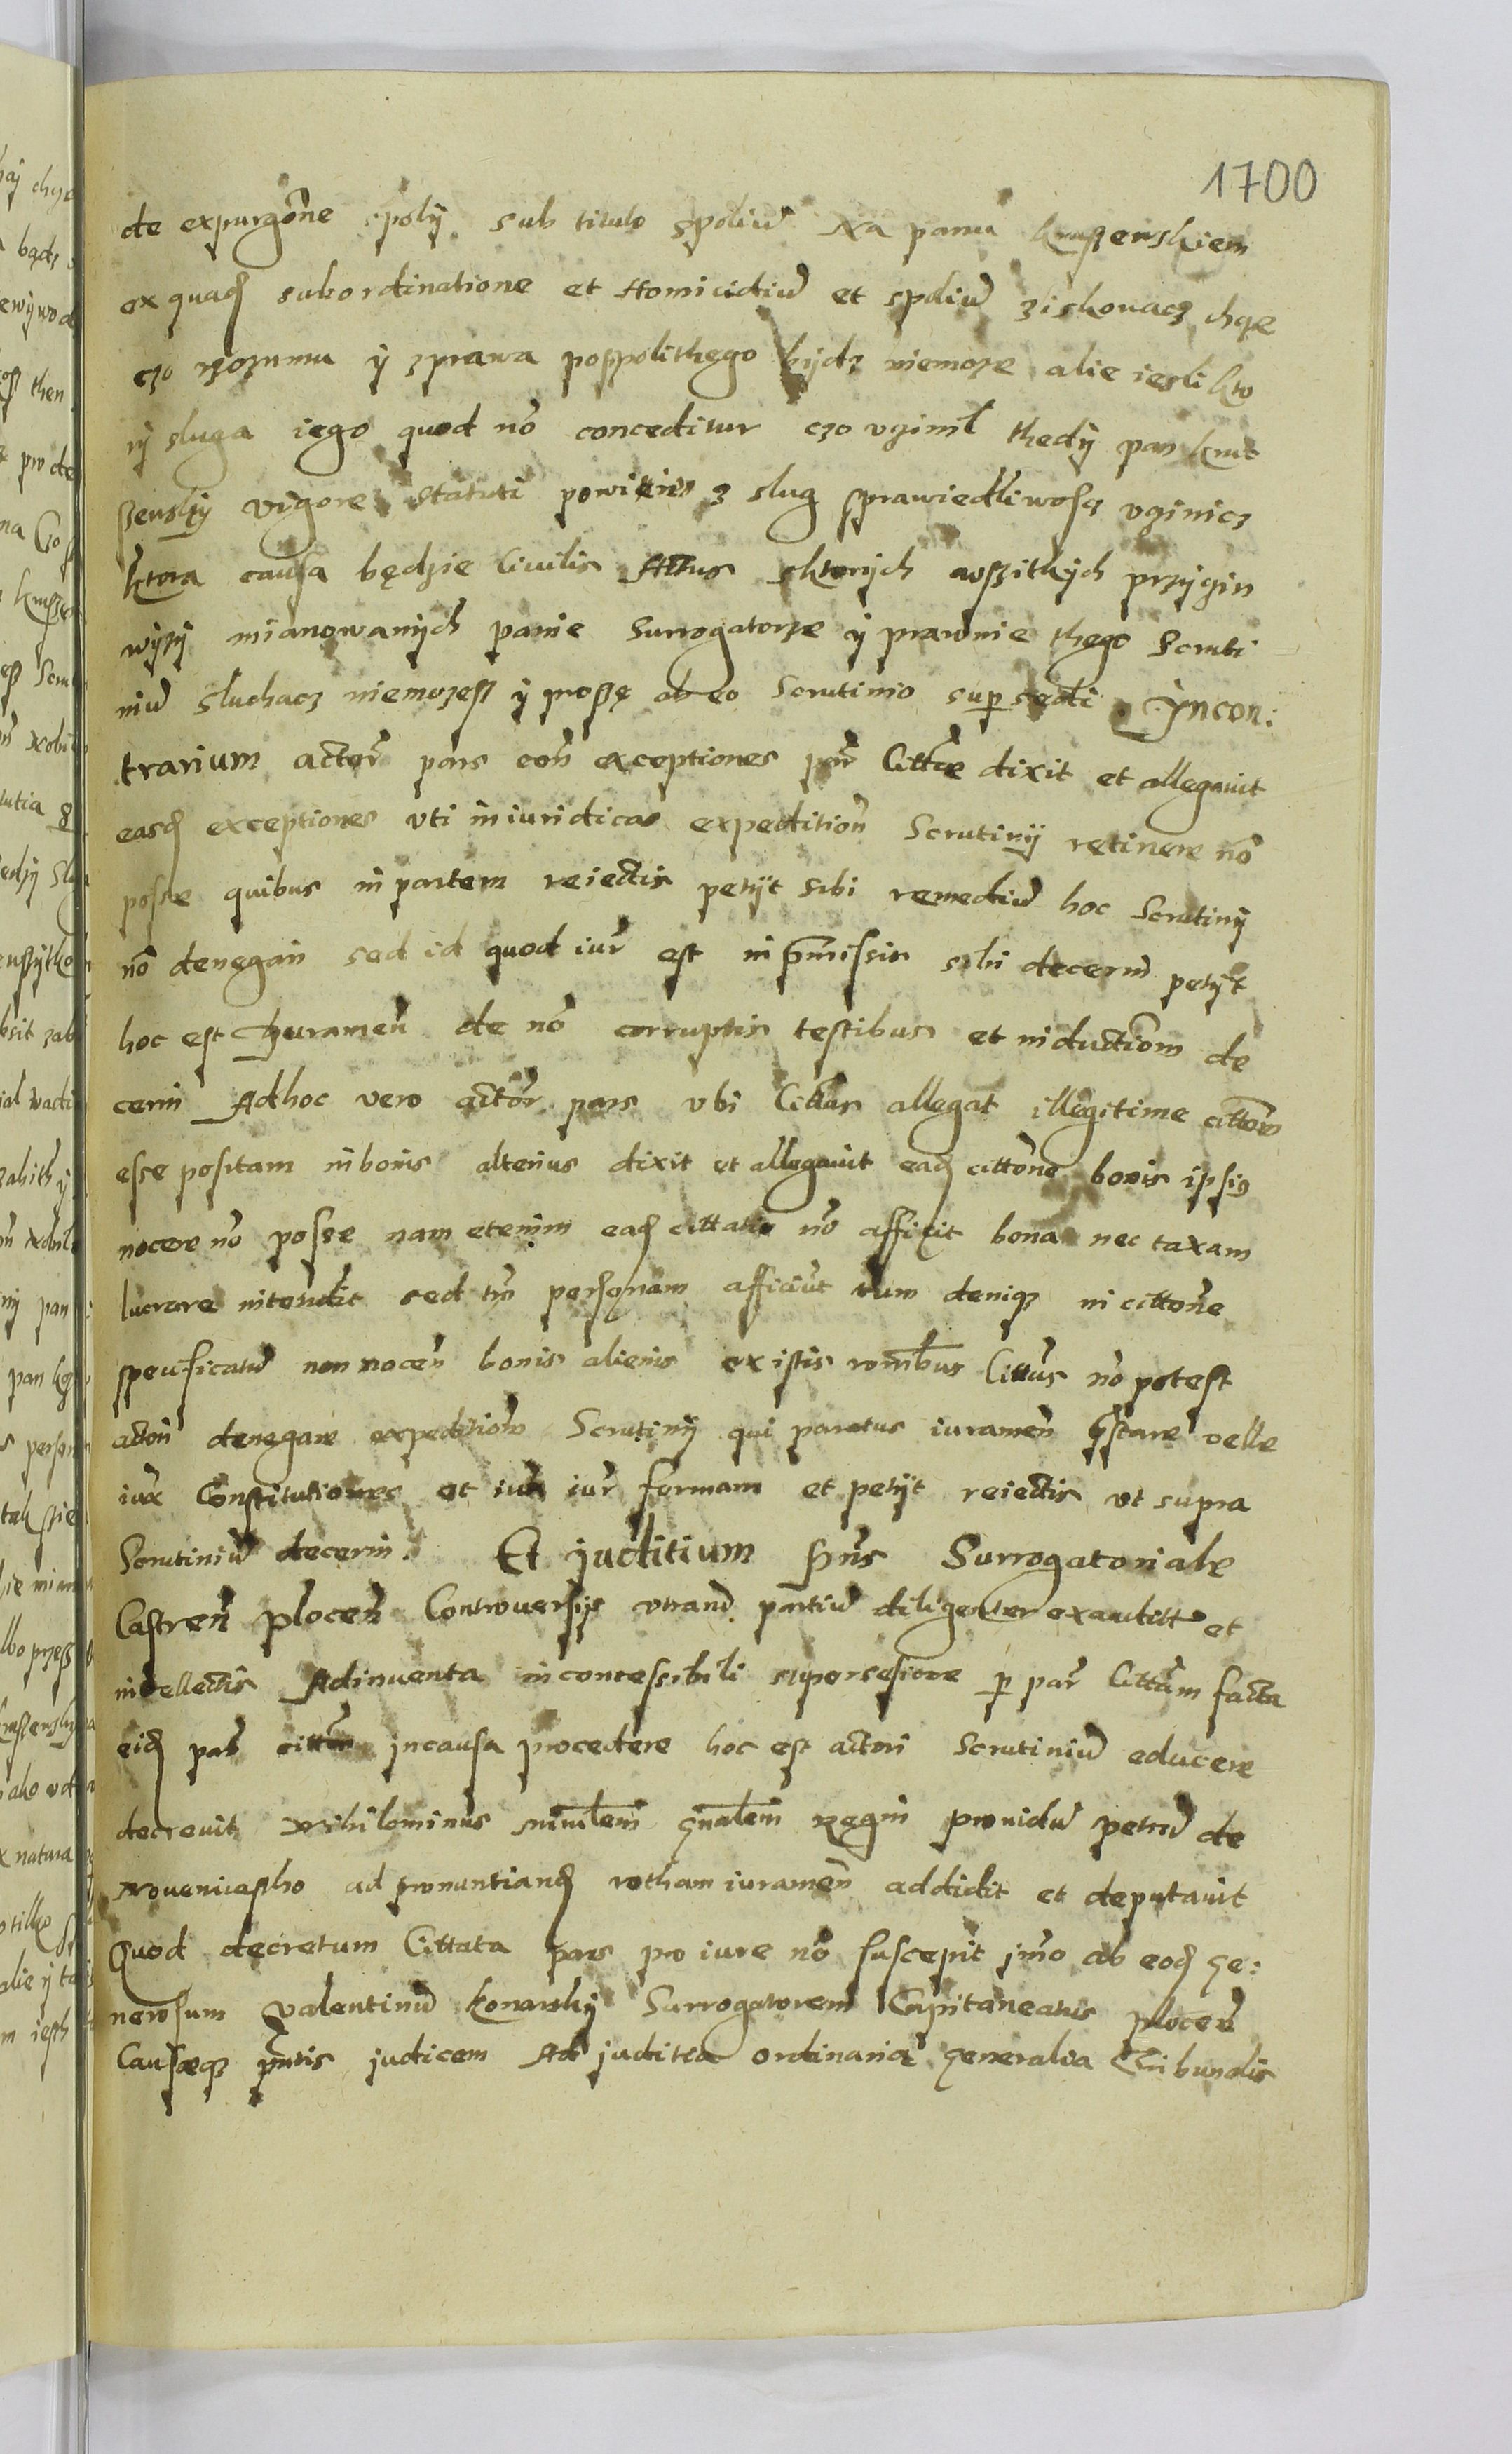 1700
de expurgõne spolÿ sub titulo spoliũ Na panu kruszenskiem
ex quadꝫ subordinatione et Homicidiũ et spoliũ ziskouacz chcze
czo rozumu ÿ zprawa pospolithego bÿdz niemoze alie iesli kto
rÿ sluga iego quod nõ conceditur czo vginił thedÿ pan krus
szenskÿ vigore statuti powinien z slug sprawiedliwoscz vginicz
ktora causa będzie Ciuilis Actus sktorÿch wszitkÿch przÿgin
wÿzÿ mianowanÿch panie Surrogatorze ÿ prawnie thego Scruti
niũ sluchacz niemozess ÿ proszę ab eo Scrutinio supersedi. Incon:
trarium actor̃ pars con̄ exceptiones par̃ Cittatae dixit et allegauit
easdꝫ exceptiones vti iniuridicas expeditioñ Scrutinÿ retinere nõ
posse quibus in partem reiectis petÿt sibi remediũ hoc Scrutinÿ
nõ denegari sed id quod iur̃ est in p̃missis sibi decerni petÿt
hoc est Juramen̄ de nõ corruptis testibus et inductiom̃ de
cerni Adhoc vero actor̃ pars vbi Cittatus allegat illegitime cittom̃
esse positam in bonis alterius dixit et allegauit eadꝫ cittõne bonis ipsius
nocere nõ posse nam etenim eadꝫ cittatio nõ afficit bona nec taxam
lucrare intendit sed tm̃ personam afficiut tum deniqꝫ in cittõne
specificatũ non nocen̄ bonis alienis ex istis rõnibus Cittatus nõ potest
actori denegare expeditiom̃ Scrutinÿ qui paratus iuramen̄ p̃stare velle
iux̃ Constitutiones et iuxta iur̃ formam et petÿt reiectis vt supra
Scrutiniũ decerni. Et juditium p̃ns Surrogatoriale
Castren̄ plocen̄ Controuersÿs vtrarũ partiũ diligenter exauditis et
intellectis Adinuenta inconcessibili supersesione p par̃ Cittatam facta
eidꝫ parti in causa procedere hoc est actori Scrutiniũ educere
decreuit nihilominus mĩnlem gñalem Regni prouidũ petrũ de
ad pronuntiandꝫ rotham iuramen̄ addidit et deputauit
Quod decretum Cittata pars pro iure nõ suscepit jm̃o ab eodꝫ ge:
nerosum Valentinũ Konarskÿ Surrogatorem Capitaneatus plocen̄
Causaeqꝫ p̃ntis judicem Ad juditia ordinaria generalia Tribunalis